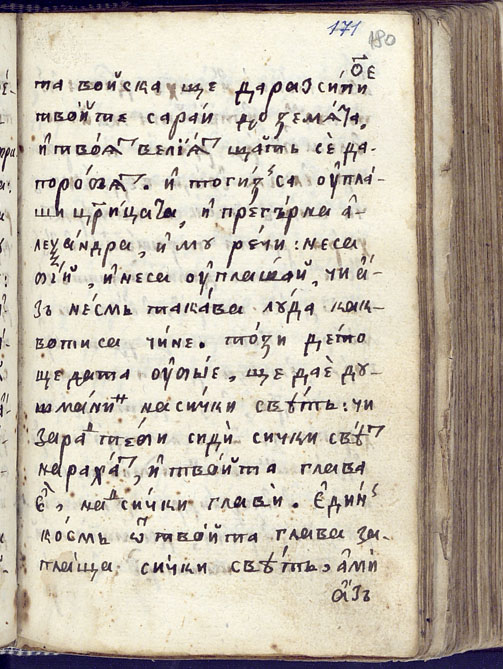 171
180
о҃е
та войска ще даразсипи
твойте сараи до земята,
и твоѧт велїѧт щать се да
поробѧт. и тогизи са оупла-
ши црицата, и прегърна а-
леѯандра, и му речи: неса
бїй, и неса оуплашай, чи а-
зъ несмь такава луда как-
вотиса чине. този дето
ще дата оубые, ще дае ду-
шманин на сички свѣть: чи
зарад тебѝ сиди сички свѣт
нарахат, и твойта глава
є, над сички главѝ. Єдинъ
космь ѿ твойта глава за-
плаща сички свѣть, амѝ
азъ